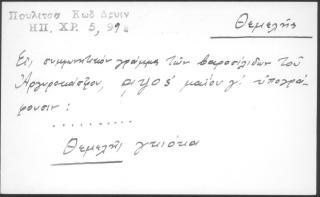 Πουλίτσα Κωδ Δρυιν
ΗΠ, ΧΡ. 5, 99
Θεμελῆς
Εἰς συμφωνητικὸν γράμμα τῶν βαροσλίδων τοῦ
Ἀργυροκάστρου, αψος' μαΐου γ' ὑπογρά-
φουσιν :
..........
Θεμελῆς γκιόκα